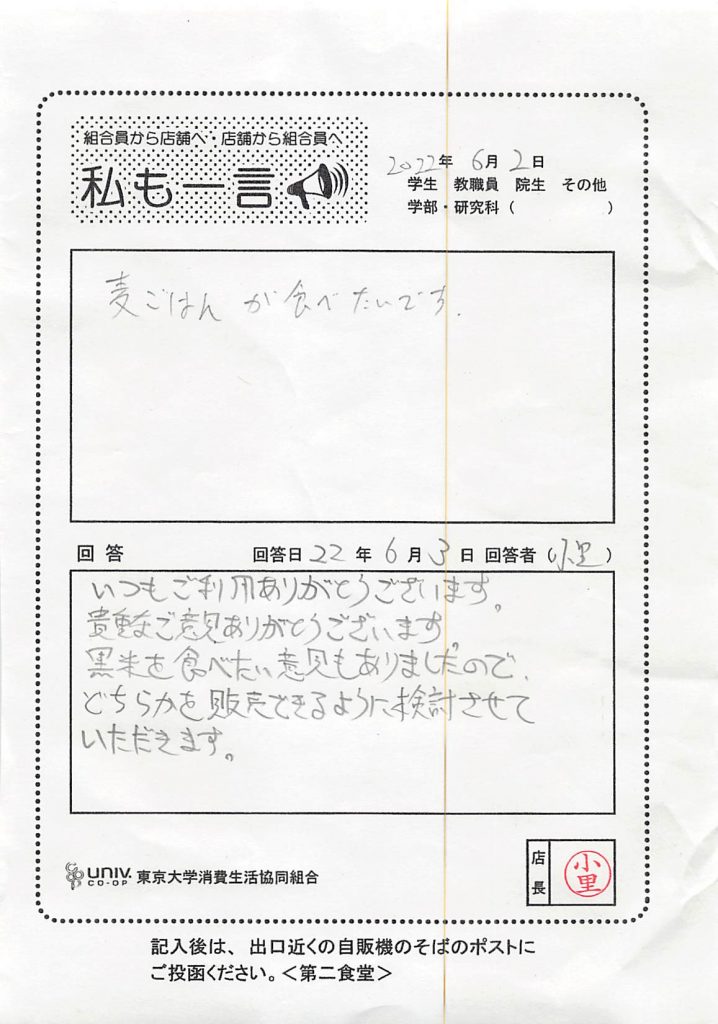 組合員から店舗へ・店舗から組合員へ
私も一言
2022年 6月 2日
学生 教職員 院生 その他
学部・研究科( )
麦ごはんが食べたいです.
回答 回答日 22 年 6 月 3 日 回答者 (小里)
いつもご利用ありがとうございます。
貴重なご意見ありがとうございます。
黒米を食べたい意見もありましたので、
どちらかを販売できるように検討させて
いただきます。
UNIV. CO-OP 東京大学消費生活協同組合
店長 小里
記入後は、出口近くの自販機のそばのポストに
ご投函ください。<第二食堂>